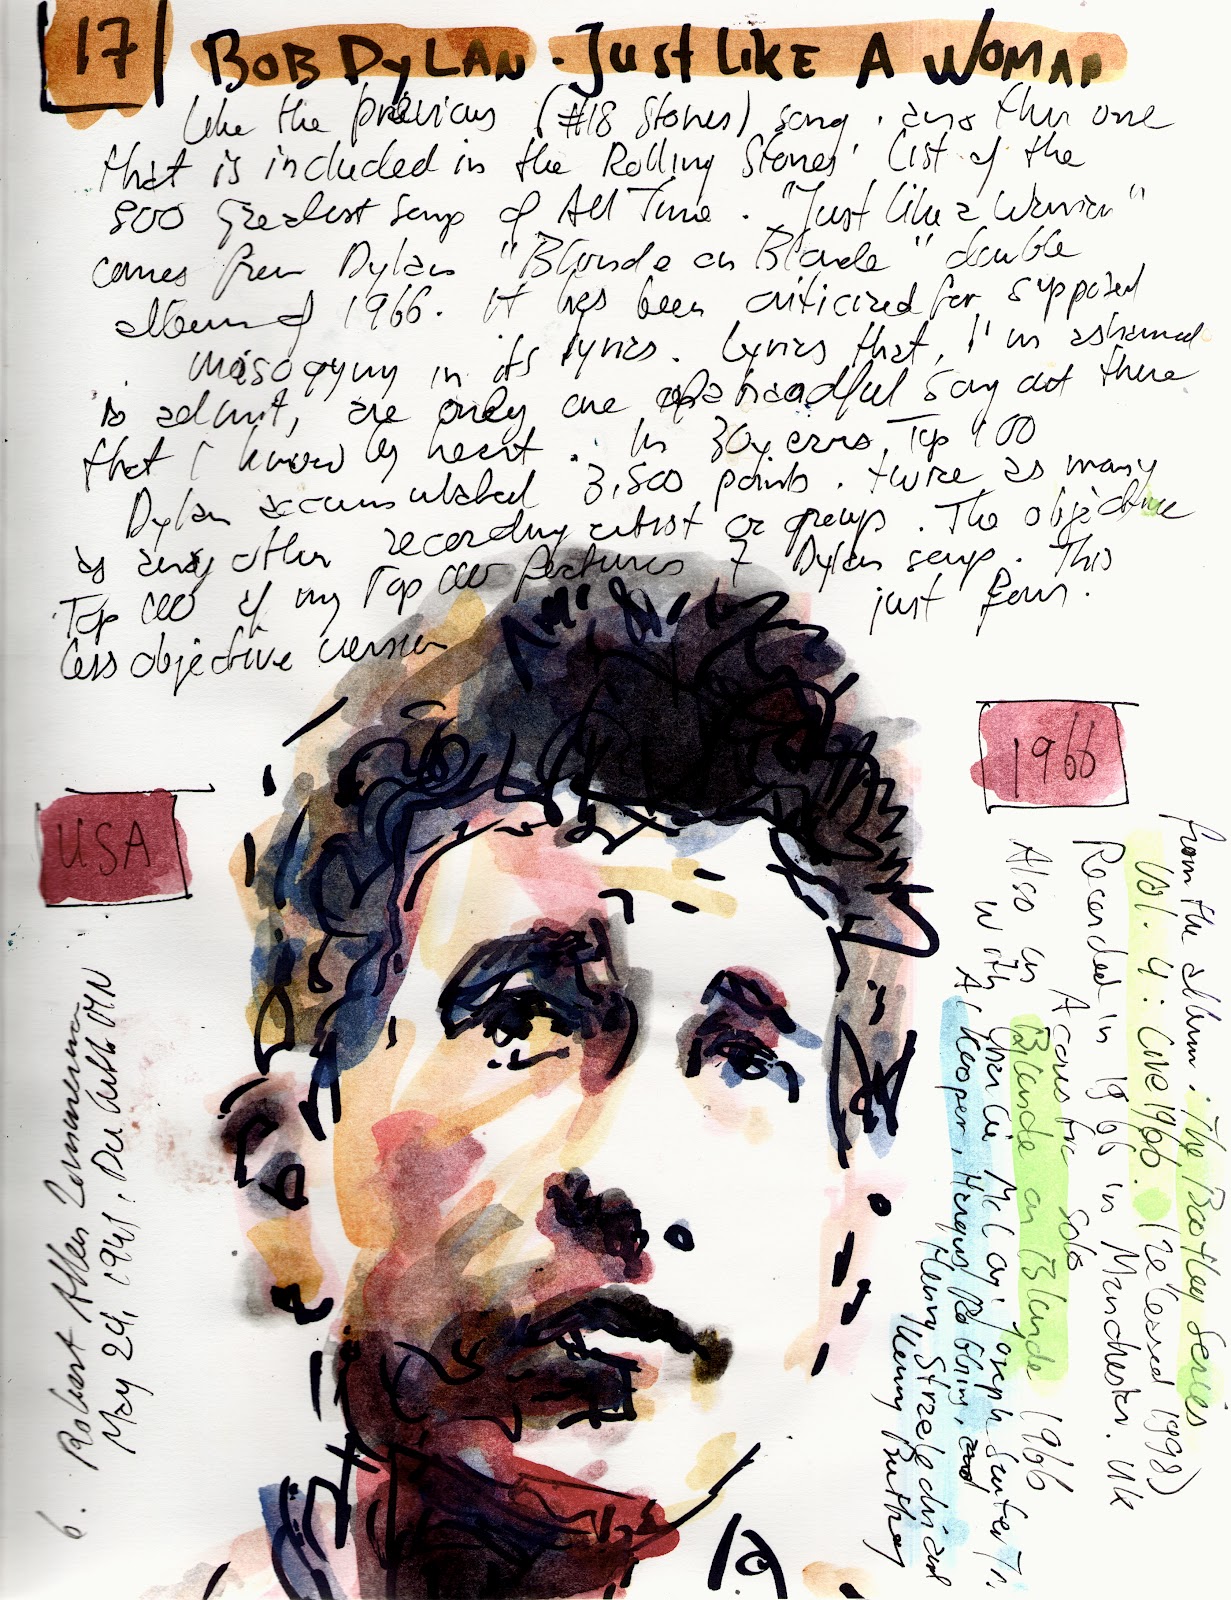 17 BOB DYLAN - JUST LIKE A WOMAN
Like the previous (#18 Stones) song, also this one
that is included in the Rolling Stones' list of the
500 greatest songs of All Time. "Just like a Woman"
comes from Dylan "Blonde on Blonde" double
album of 1966. It has been criticized for supposed
misogyny in its lyrics. Lyrics that, I'm ashamed
to admit, are only one of a handful song out there
that I know by heart. In 30 years Top 100
Dylan accumulated 3,500 points. twice as many
as any other recording artist or group. The objective
Top 100 of my Top 100 features 7 Dylan songs. This
less objective version just four.
1966
USA
b. Robert Allen Zimmerman
May 24, 1941, Duluth MN
from the album: The Bootleg Series
Vol. 4: Live 1966. (released 1998)
Recorded in 1966 in Manchester. UK
Acoustic solo
Also in Blonde on Blonde 1966
With Charlie McCoy, Joseph Souter Jr.
Al Kooper, Hargus Robbins, and
Henry Strzelecki and
Kenny Buttrey